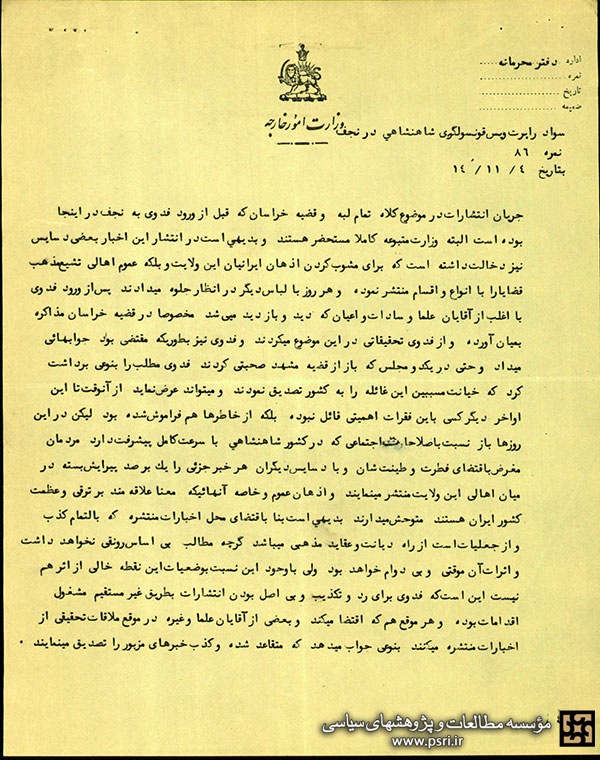 اداره دفتر محرمانه
نمره
تاریخ
ضمیمه
وزارت امور خارجه
سواد راپرت ویس قونسولگری شاهنشاهی در نجف
نمره ۸۶
بتاریخ ۴ / ۱۱ / ۱۴
جریان انتشارات در موضوع کلاه تمام لبه و قضیه خراسان که قبل از ورود فدوی به نجف در اینجا
بوده است البته وزارت متبوعه کاملا مستحضر هستند و بدیهی است در انتشار این اخبار بعضی دسایس
نیز دخالت داشته است که برای مشوب کردن اذهان ایرانیان این ولایت و بلکه عموم اهالی تشیع مذهب
قضایا را با انواع و اقسام منتشر نموده و هر روز با لباس دیگر در انظار جلوه میدادند پس از ورود فدوی
با اغلب از آقایان علما و سادات و اعیان که دید و باز دید میی شد مخصوصا در قضیه خراسان مذاکره
بمیان آورده و از فدوی تحقیقاتی در این موضوع میکردند و فدوی نیز بطوریکه مقتضی بود جوابهائی
میداد و حتی در یکدو مجلس که باز از قضیه مشهد صحبتی کردند فدوی مطلب را بنوعی برداشت
کرد که خیانت مسببین این غائله را به کشور تصدیق نمودند و میتواند عرض نماید از آنوقت تا این
اواخر دیگر کسی باین فقرات اهمیتی قائل نبوده بلکه از خاطرها هم فراموش شده بود لیکن در این
روزها باز نسبت باصلاحات اجتماعی که در کشور شاهنشاهی با سرعت کامل پیشرفت دارد مردمان
مغرض باقتضای فطرت و طینت شان و با دسایس دیگران هر خبر جزئی را یك بر صد پیرایش بسته در
میان اهالی این ولایت منتشر مینمایند و اذهان عموم و خاصه آنهائیکه معنا علاقه مند بر ترقی و عظمت
کشور ایران هستند متوحش میدارند بدیهی است بنا باقتضای محل اخبارات منتشره که بالتمام کذب
و از جعلیات است از راه دیانت و عقاید مذهبی میباشد گرچه مطالب بی اساس رونقی نخواهد داشت
و اثرات آن موقتی و بی دوام خواهد بود ولی با وجود این نسبت بوضعیات این نقطه خالی از اثر هم
نیست این است که فدوی برای رد و تکذیب و بی اصل بودن انتشارات بطریق غیر مستقیم مشغول
اقدامات بوده و هر موقع هم که اقتضا میکند و بعضی از آقایان علما و غیره در موقع ملاقات تحقیقی از
اخبارات منتشره میکنند بنوعی جواب میدهد که متقاعد شده و کذب خبرهای مزبور را تصدیق مینمایند .
مؤسسه مطالعات و پژوهشهای سیاسی
www.psri.ir